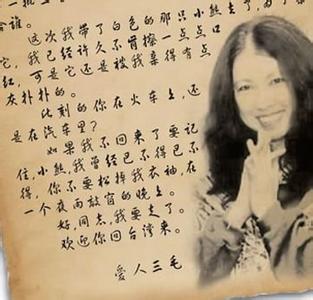 谁。
这次我带了白色的那只小熊去了，为了亲
它，我已经许久不肯擦一点点口
红，可是它还是被我亲得有点
灰扑扑的。
此刻的你在火车上，还
是在汽车里？
如果我不回来了要记
住，小熊，我曾经巴不得巴不
得，你不要松掉我衣袖，在
一个夜雨敲窗的晚上。
好，同志，我要走了。
欢迎你回台湾来。
爱人三毛